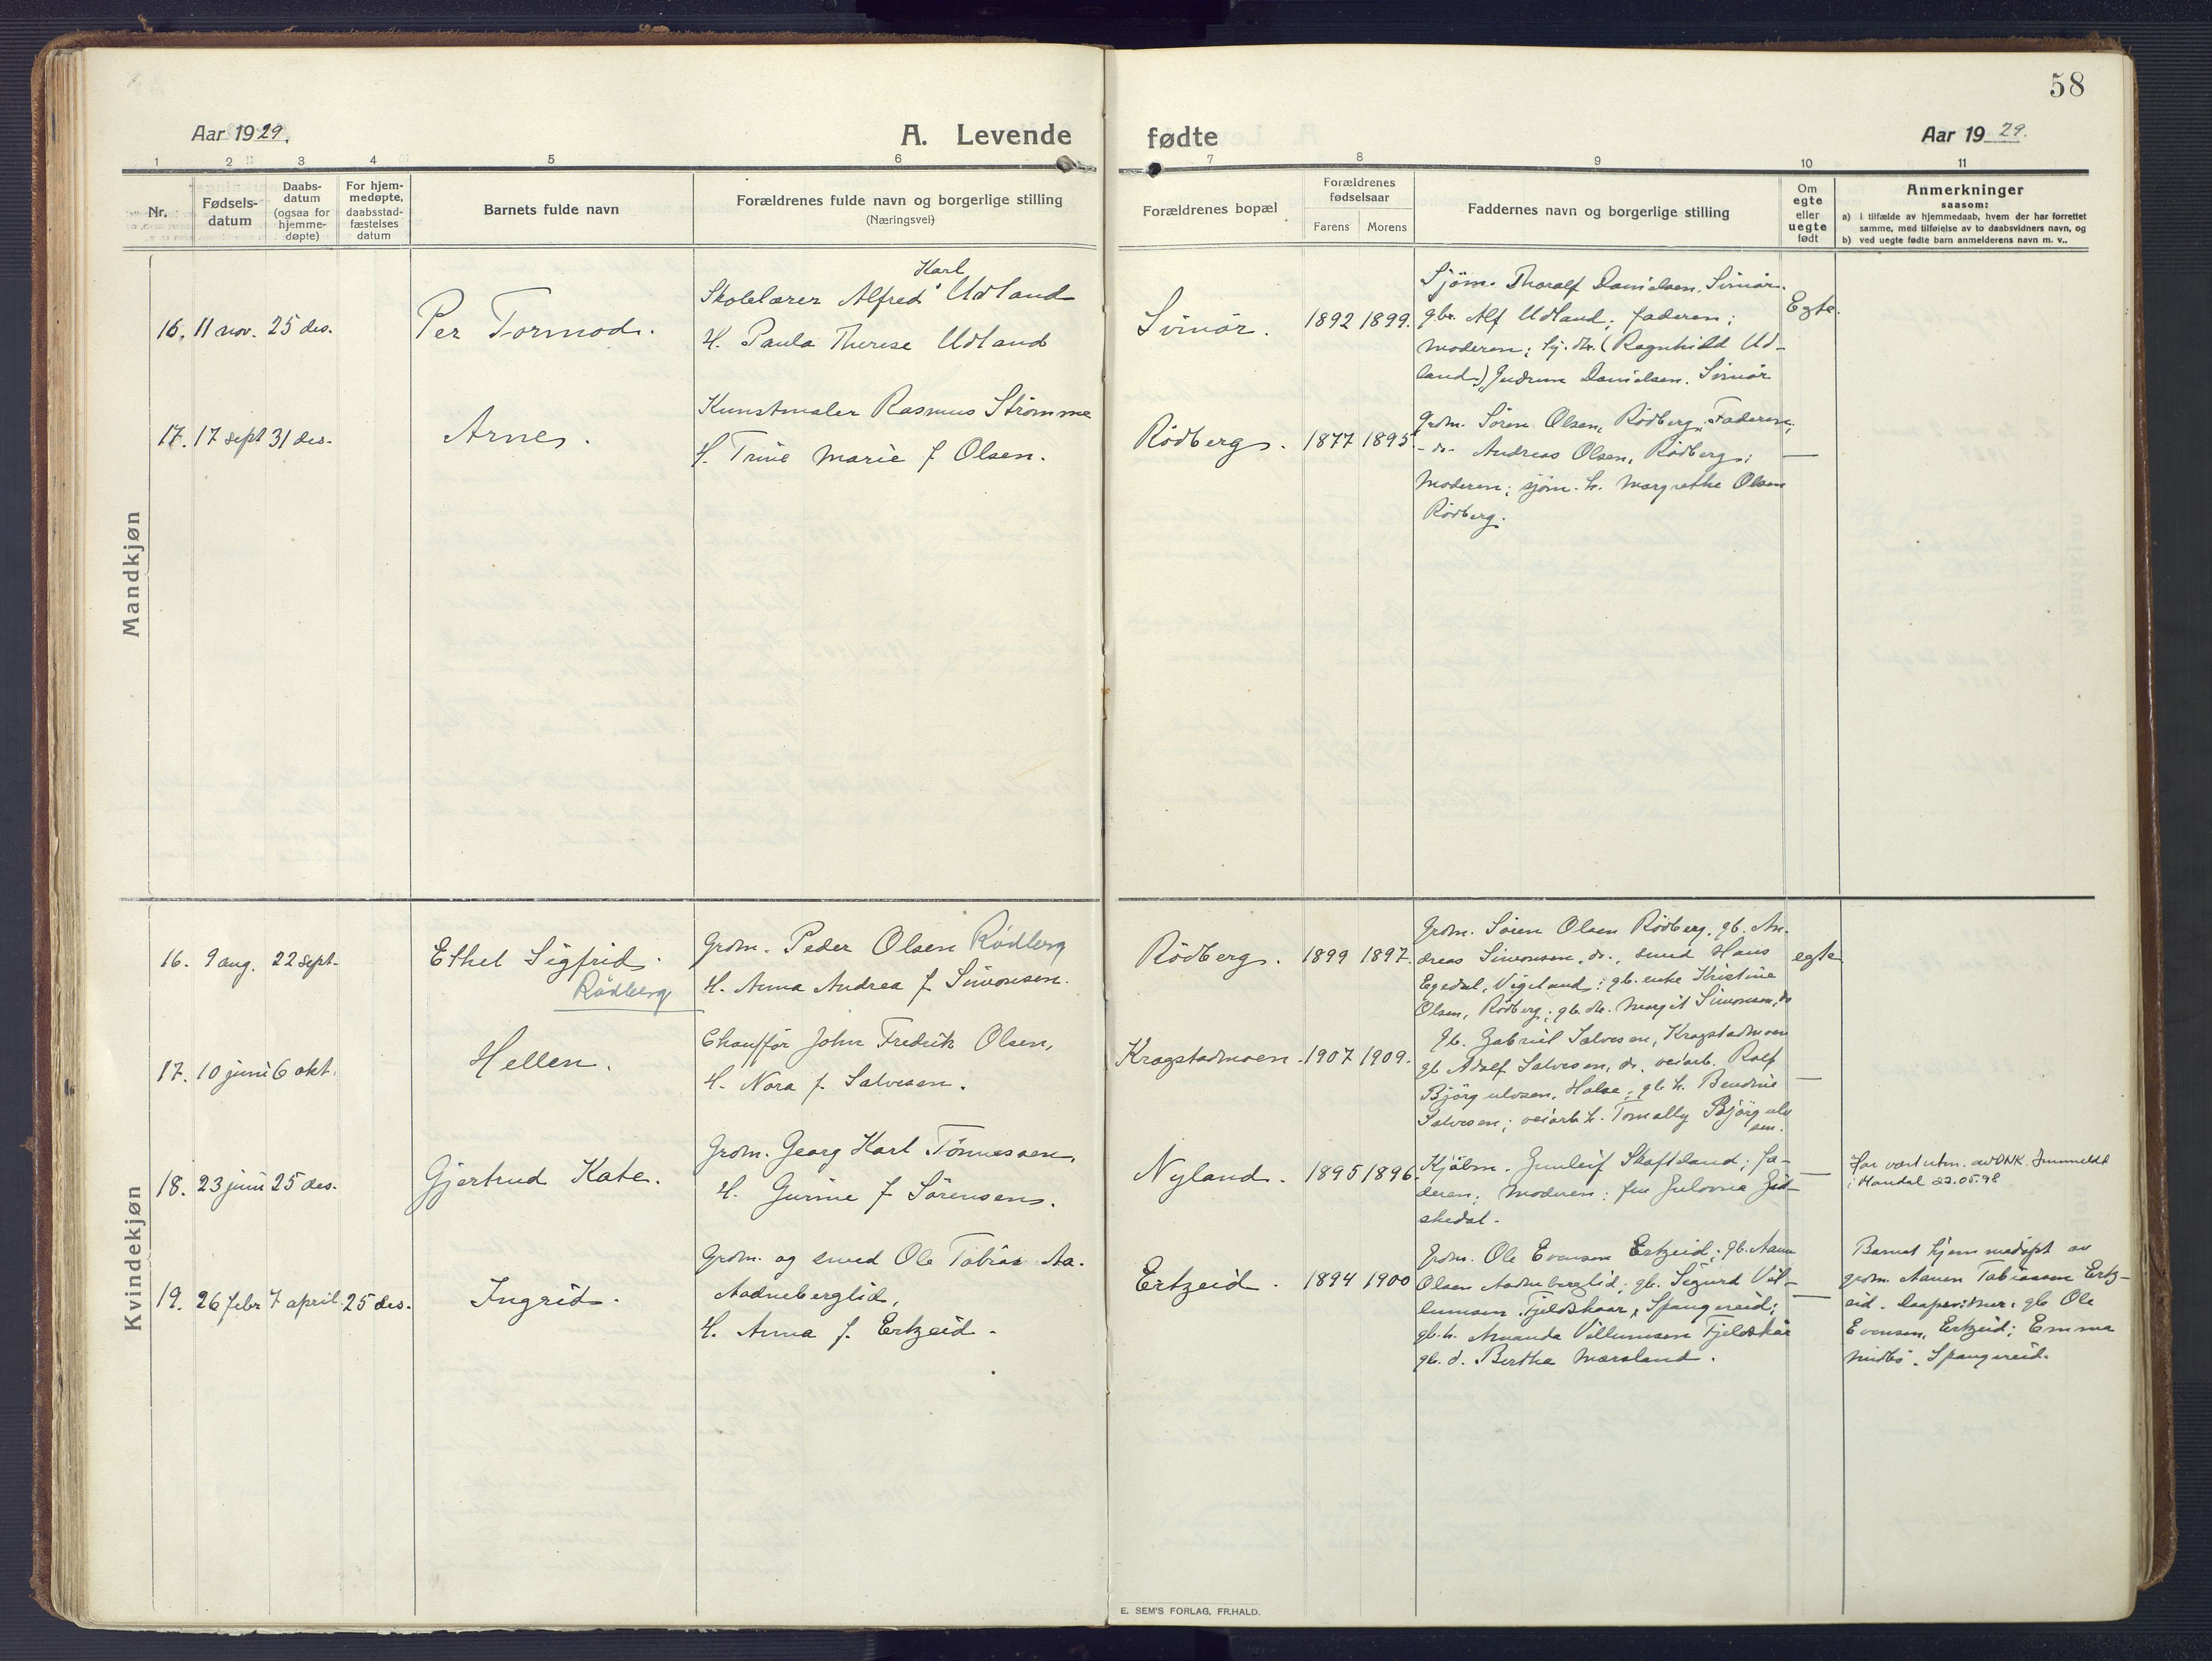 58
Aar 1929.
A. Levende
fødte
Aar 1929.
1 2 3 4 5 6 7 8 9 10 11
Nr.
Fødsels-
datum
Daabs-
datum
(ogsaa for
hjemme-
døpte)
For hjem-
medøpte,
daabsstad-
fæstelses
datum
Barnets fulde navn
Forældrenes fulde navn og borgerlige stilling
(Næringsvei)
Forældrenes bopæl
Forældrenes
fødselsaar
Farens Morens
Faddernes navn og borgerlige stilling
Om
egte
eller
uegte
født
Anmerkninger
saasom:
a) i tilfælde av hjemmedaab, hvem der har forrettet
samme, med tilføielse av to daabsvidners navn, og
b) ved uegte fødte barn anmelderens navn m. v..
Mandkjøn
16. 11 nov. 25 des.
Per Tormod.
Karl
Skolelærer Alfred Udland
H. Paula Therese Udland
Svinör.
1892 1899.
Sjøm. Thoralf Danielsen, Svinör.
gbr. Alf Udland; faderen;
moderen; lj. dtr. (Ragnhild Ud-
land) Gudrun Danielsen. Svinör
Egte.
17. 17 sept 31 des.
Arne.
Kunstmaler Rasmus Strömme
H. Trine Marie f Olsen.
Rödberg.
1877 1895
Grdm. Sören Olsen, Rödberg; Faderen;
- do- Andreas Olsen, Rödberg;
Moderen; sjöm. h. Margrethe Olsen
Rödberg.
—
Kvindekjøn
16. 9 aug. 22 sept.
Ethel Sigfrid.
Rödberg
Grdm. Peder Olsen Rödberg
H. Anna Andrea f Simonsen.
Rödberg.
1899 1897.
Grdm. Sören Olsen Rödberg, gb. An-
dreas Simonsen, do., smed Hans
Egedal, Vigeland; gb. enke Kristine
Olsen, Rödberg; gb. dtr. Margit Simonsen, do
egte
17. 10 juni 6 okt.
Hellen.
Chauffør John Fredrik Olsen,
H. Nora f. Salvesen.
Kragstadmoen.
1907 1909.
Gb. Gabriel Salvesen, Kragstadmoen
gb Adolf Salvesen, do, veiarb. Rolf
Bjørgulvsen, Halse; gb h. Bendine
Salvesen; veiarb h. Tomally Bjørgulv
sen.
—
18. 23 juni 25 des.
Gjertrud Kate.
Grdm. Georg Karl Tönnessen,
H. Gurine f Sörensen.
Nyland.
1895 1896.
Kjøbm. Gunleif Skofteland; fa-
deren; Moderen; fru
skedal.
—
Har vært utm. av DNK. Innmeldt
i Mandal 22.05.98
19. 26 febr 7 april 25 des.
Ingrid.
Grdm. og smed Ole Tobias Aa.
Aadneberglid,
H. Anna f. Ertzeid.
Ertzeid.
1894 1900
Grdm. Ole Evensen Ertzeid; gb. Aanen
Olsen Aadneberglid; gb. Sigurd Vil-
lumsen Fjeldskaar, Spangereid;
gb. h. Amanda Villumsen Fjeldskår
gb. d. Berthe Marsland.
—
Barnet hjemmedøpt av
grdm. Aanen Tobiassen Ertz-
eid. Daapsvitner: gb Ole
Evensen, Ertzeid; Emma
Midbö. Spangereid.
E. SEM'S FORLAG, FR.HALD.